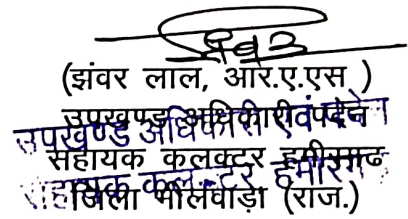 (झंवर लाल, आर.ए.एस )
उपखण्ड अधिकारी एवं पदेन
सहायक कलक्टर हमीरगढ
जिला भीलवाड़ा (राज.)
उपखण्ड अधिकारी एवं पदेन
सहायक कलक्टर हमीरग